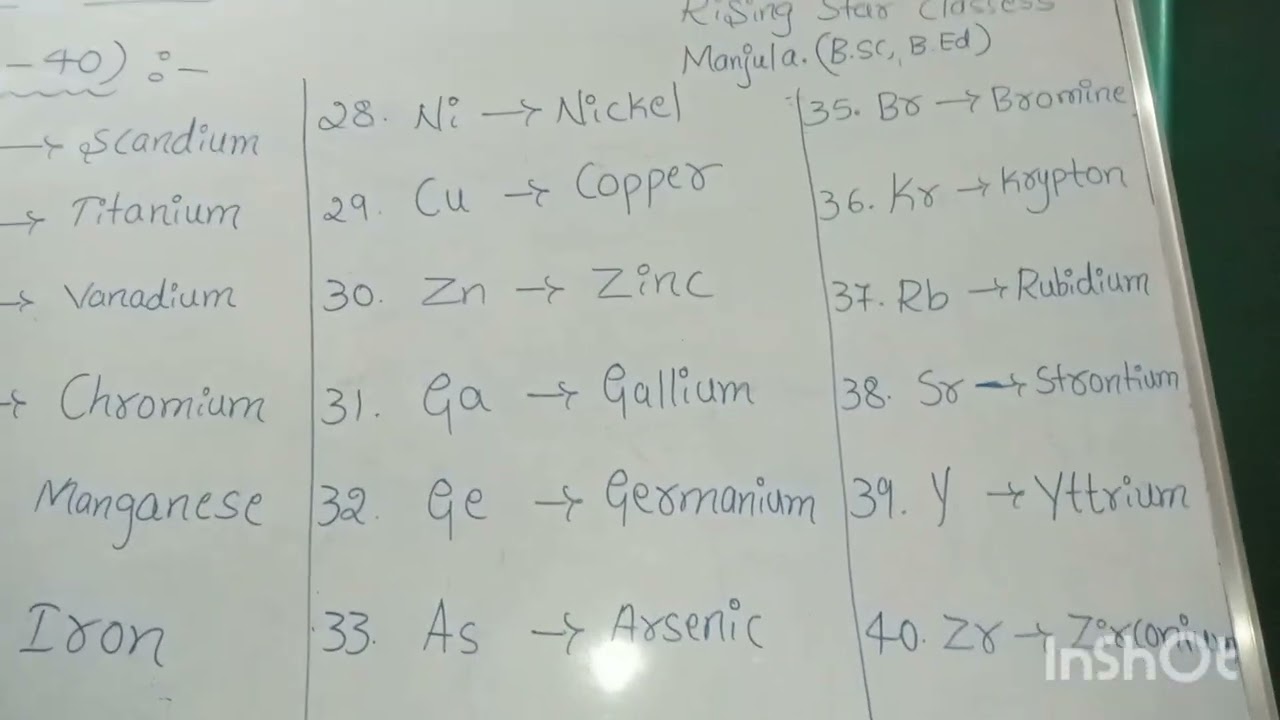 Rising Star Classess
Manjula. (B.Sc, B.Ed)
- 40) :-
→ Scandium
→ Titanium
→ Vanadium
→ Chromium
Manganese
Iron
28. Ni → Nickel
29. Cu → Copper
30. Zn → Zinc
31. Ga → Gallium
32. Ge → Germanium
33. As → Arsenic
35. Br → Bromine
36. Kr → Krypton
37. Rb → Rubidium
38. Sr → Strontium
39. Y → Yttrium
40. Zr → Zirconium
InShOt